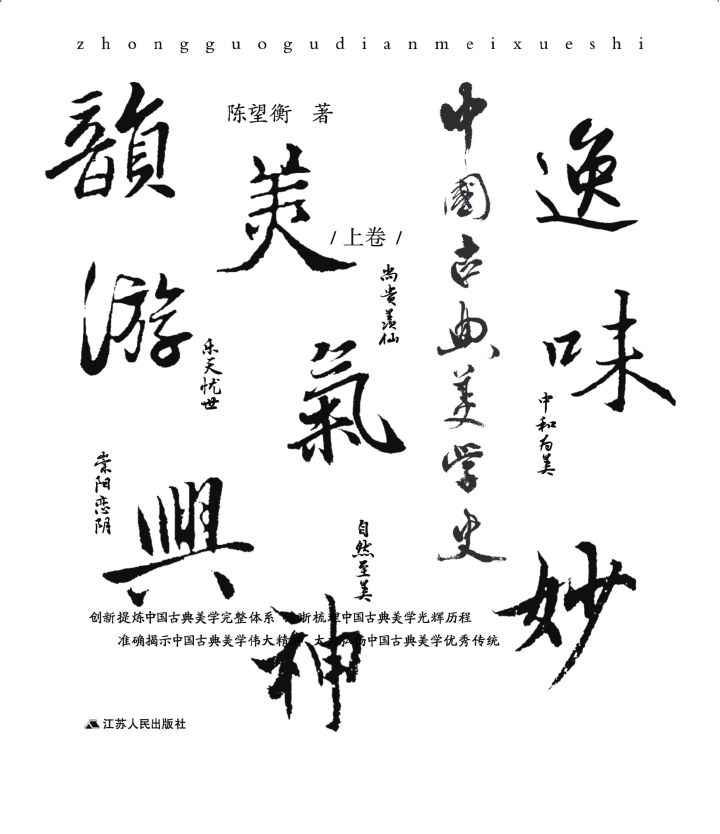 zhongguogudianmeixueshi
陈望衡 著
中國古典美学史
/ 上卷 /
韻
美
逸
游
尚贵羡仙
乐天忧世
氣
味
中和为美
崇阳恋阴
興
自然至美
神
妙
创新提炼中国古典美学完整体系 清晰梳理中国古典美学光辉历程
准确揭示中国古典美学伟大精 大 中国古典美学优秀传统
江苏人民出版社